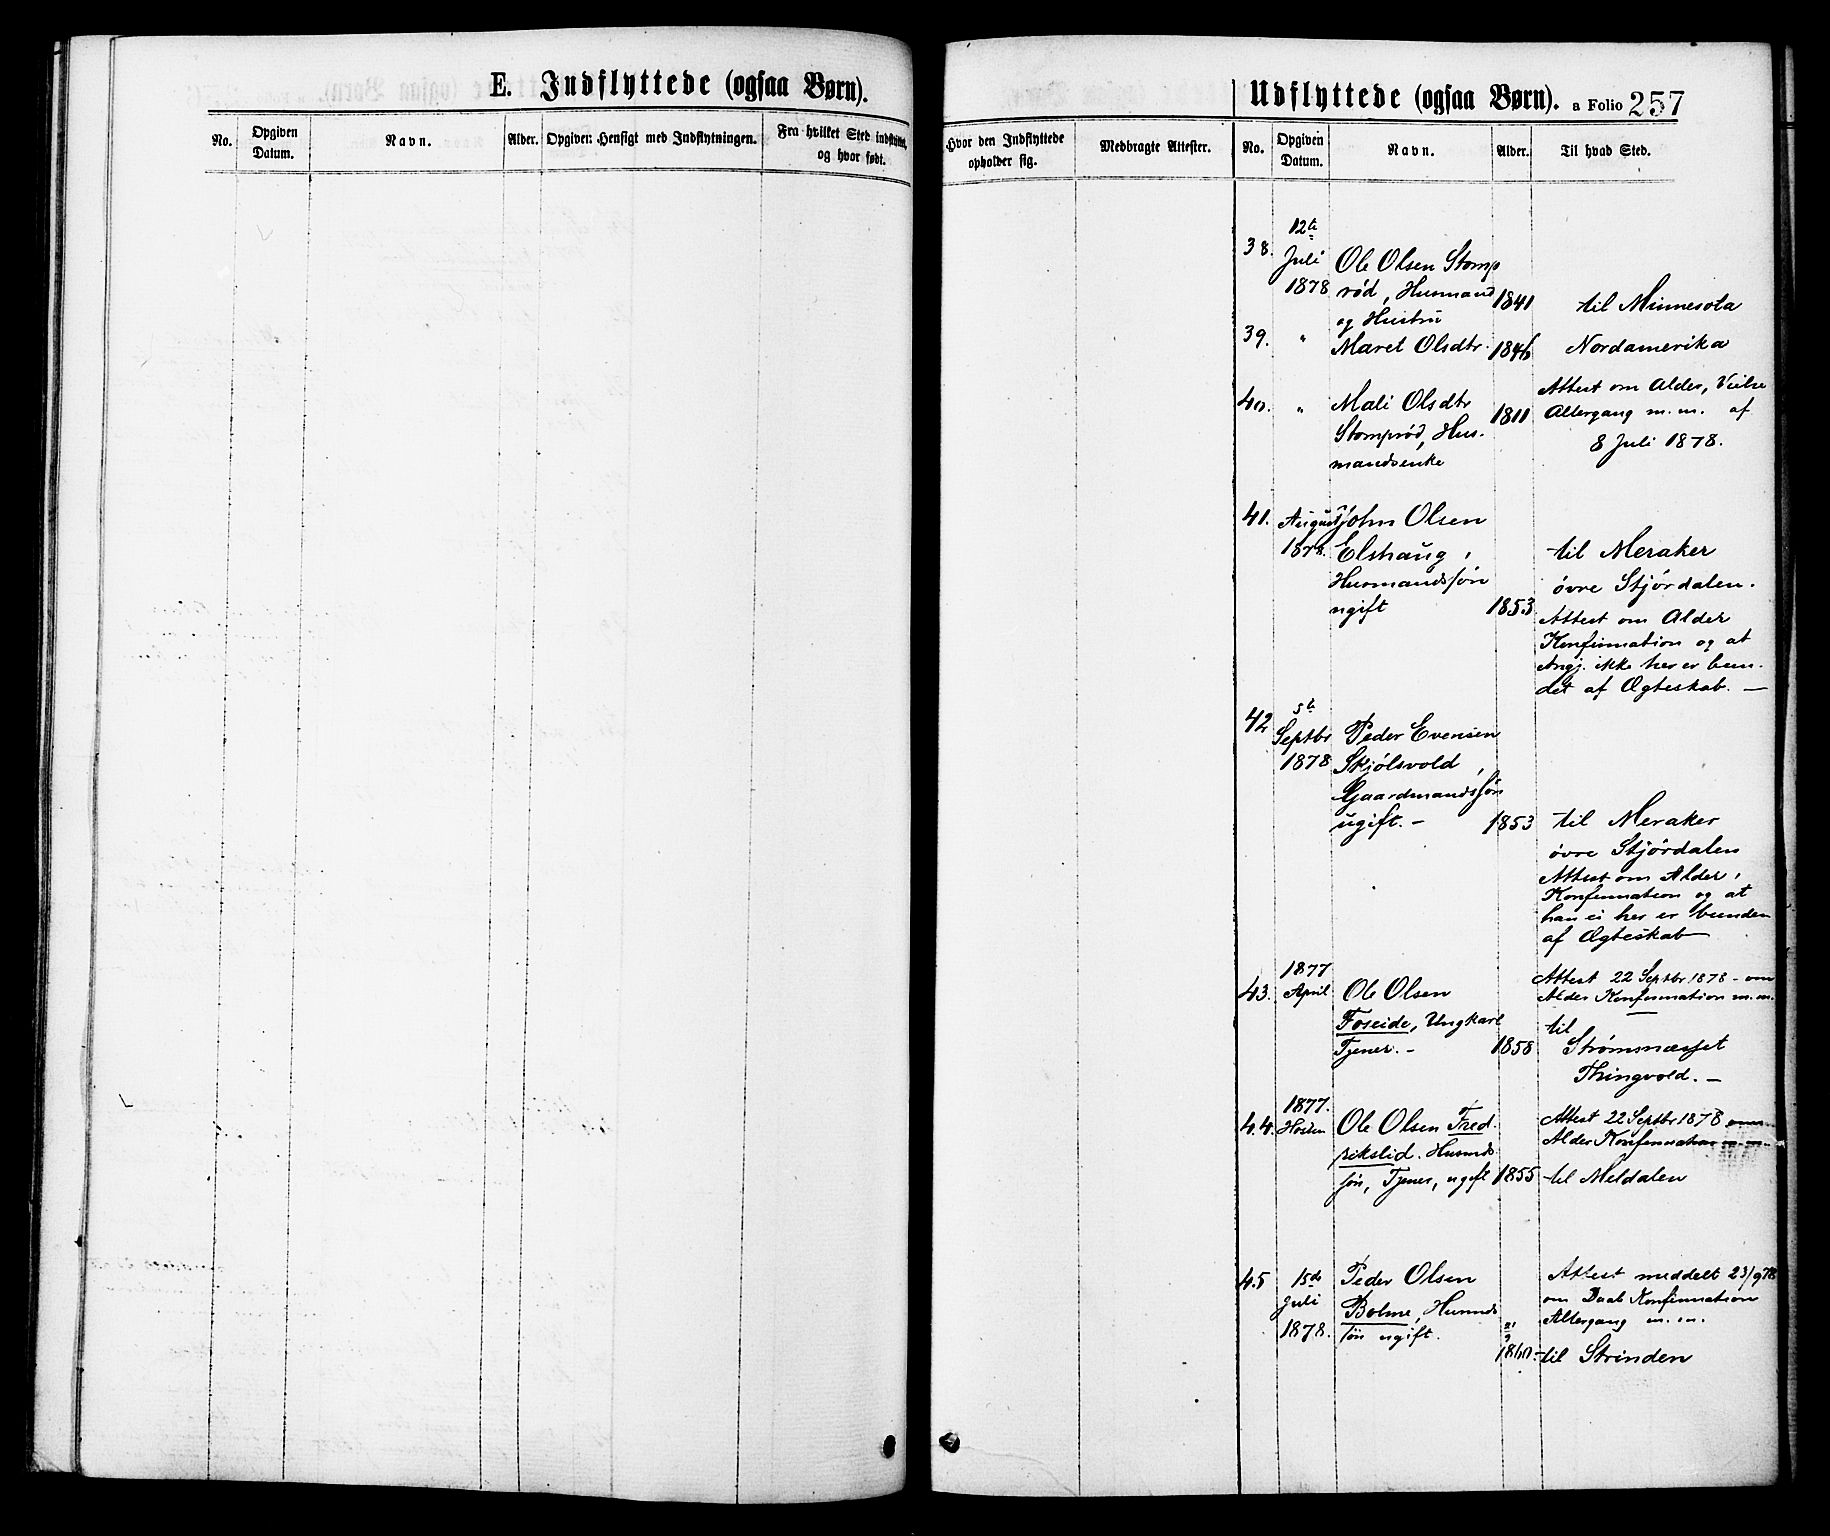 E. Indflyttede (ogsaa Børn).
No.
Opgiven
Datum.
Navn.
Alder.
Opgiven Hensigt med Indflytningen.
Fra hvilket Sted indflyttet,
og hvor født.
Udflyttede (ogsaa Børn). a Folio 257
Hvor den Indflyttede
opholder sig.
Medbragte Attester.
No.
Opgiven
Datum.
Navn.
Alder.
Til hvad Sted.
38. 12te
Juli
1878
Ole Olsen Stomp
rød, Husmand
og Hustru
1841
til Minnesota
39. "
Maret Olsdtr. 1846
Nordamerika
40. "
Mali Olsdtr
Stomprød, Hus-
mandsenke
1811
Attest om Alder, Vielse
Altergang m.m. af
8 Juli 1878.
41. August
1878.
John Olsen
Elshaug,
Husmandssøn
ugift
1853
til Meraker
øvre Stjørdalen.
Attest om Alder
Konfirmation og at
Angj. ikke her er bun-
det af Ægteskab. —
42 5te
Septbr
1878
Peder Evensen
Skjølsvold,
Gaardmandssøn
ugift. -
1853
til Meraker
øvre Stjørdalen
Attest om Alder,
Konfirmation og at
han ei her er bunden
af Ægteskab
43. 1877
April
Ole Olsen
Foseide, Ungkarl
Tjener. -
1858
Attest 22 Septbr 1878 - om
Alder Konfirmation m.m.
til
Strømsnæsset
Thingvold. -
44. 1877.
Høsten
Ole Olsen Fred-
rikslid. Husmds
søn, Tjener, ugift
1855
Attest 22 Septbr 1878 om
Alder Konfirmation m.m.
til Meldalen
45 15de
Juli
1878.
Peder Olsen
Bolme, Husmds
søn ugift.
1860.
Attest meddelt 23/9 78
om Daab Konfirmation
Altergang m.m.
til Strinden